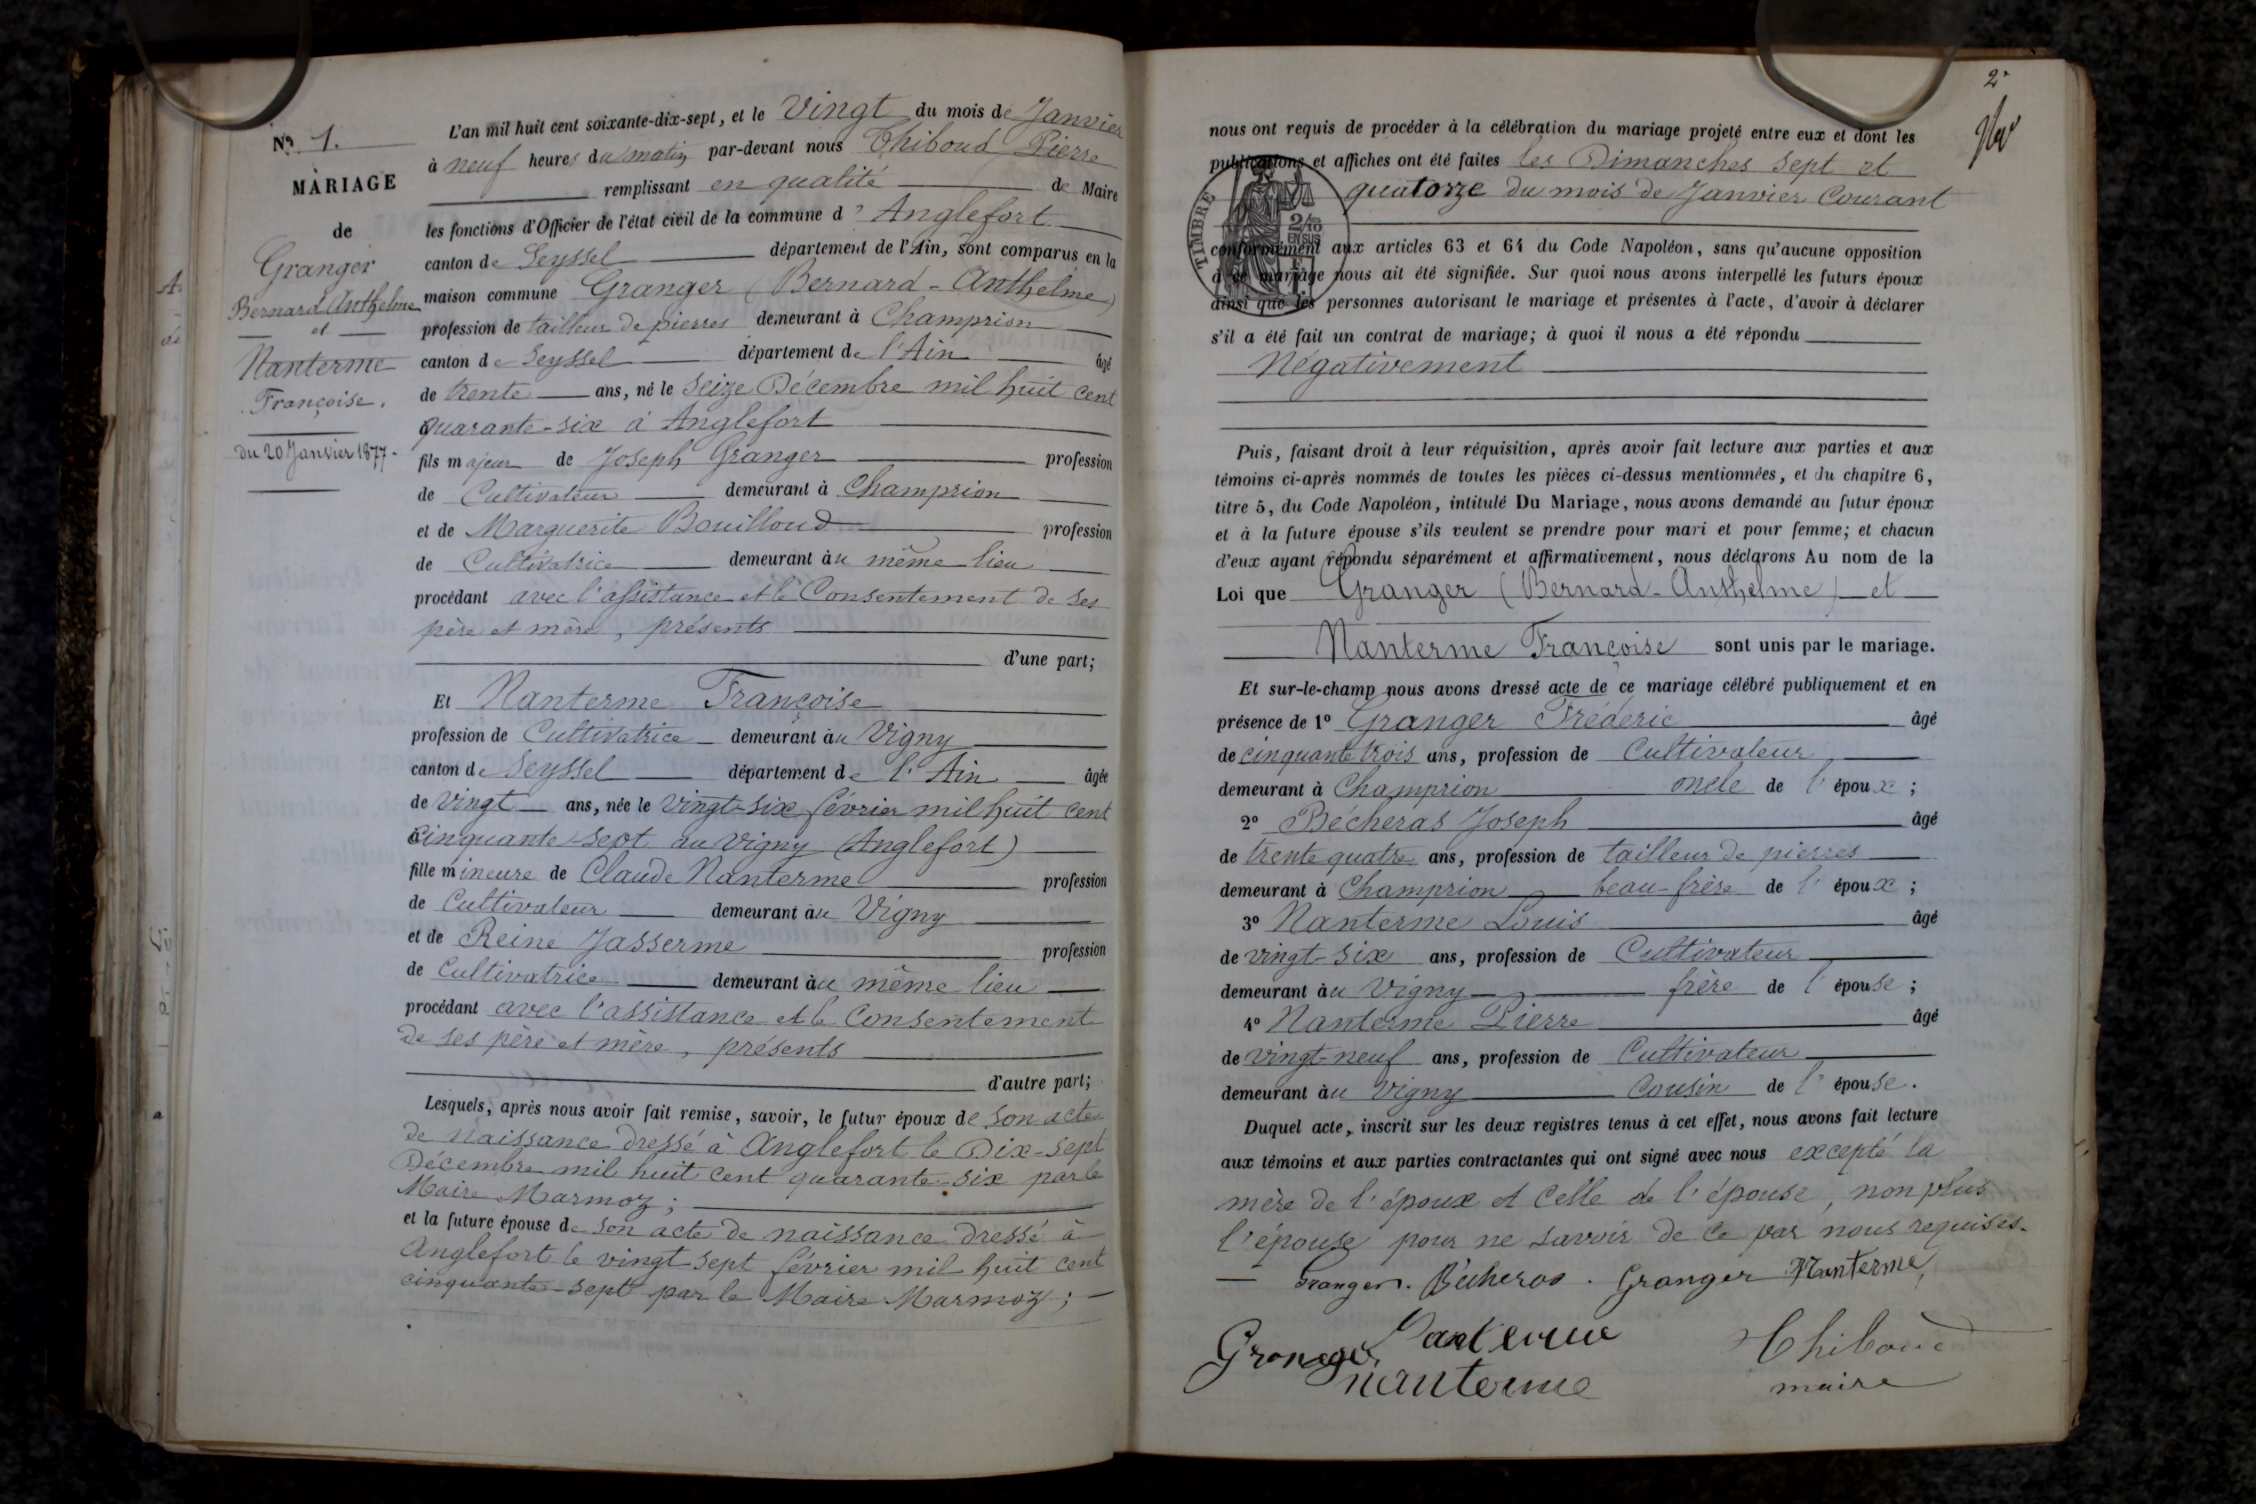 N° 1.
MARIAGE
de
Granger
Bernard Anthelme
et
Nanterme
Françoise.
du 20 Janvier 1877.
L'an mil huit cent soixante-dix-sept, et le Vingt du mois de Janvier
à neuf heures du matin par-devant nous Thiboud Pierre
remplissant en qualité de Maire
les fonctions d'Officier de l'état civil de la commune d' Anglefort
canton de Seyssel département de l'Ain, sont comparus en la
maison commune Granger (Bernard-Anthelme)
profession de tailleur de pierres demeurant à Champrion
canton de Seyssel département de l'Ain âgé
de trente ans, né le seize Décembre mil huit cent
quarante-six à Anglefort
fils majeur de Joseph Granger profession
de Cultivateur demeurant à Champrion
et de Marguerite Bouilloud profession
de Cultivatrice demeurant au même lieu
procédant avec l'assistance et le Consentement de ses
père et mère, présents
d'une part;
Et Nanterme Françoise
profession de Cultivatrice demeurant au Vigny
canton de Seyssel département de l'Ain âgée
de Vingt ans, née le vingt-six février mil huit cent
cinquante-sept au Vigny (Anglefort)
fille mineure de Claude Nanterme profession
de Cultivateur demeurant au Vigny
et de Reine Jasserme profession
de Cultivatrice demeurant au même lieu
procédant avec l'assistance et le Consentement
de ses père et mère, présents
d'autre part;
Lesquels, après nous avoir fait remise, savoir, le futur époux de son acte
de naissance dressé à Anglefort le Dix-sept
Décembre mil huit cent quarante-six par le
Maire Marmoz;
et la future épouse de son acte de naissance dressé à
Anglefort le vingt sept février mil huit cent
cinquante-sept par le Maire Marmoz;
2
nous ont requis de procéder à la célébration du mariage projeté entre eux et dont les
publications et affiches ont été faites les Dimanches sept et
quatorze du mois de Janvier Courant
TIMBRE
2/10
EN SUS
conformément aux articles 63 et 64 du Code Napoléon, sans qu'aucune opposition
à ce mariage nous ait été signifiée. Sur quoi nous avons interpellé les futurs époux
ainsi que les personnes autorisant le mariage et présentes à l'acte, d'avoir à déclarer
s'il a été fait un contrat de mariage; à quoi il nous a été répondu
Négativement
Puis, faisant droit à leur réquisition, après avoir fait lecture aux parties et aux
témoins ci-après nommés de toutes les pièces ci-dessus mentionnées, et du chapitre 6,
titre 5, du Code Napoléon, intitulé Du Mariage, nous avons demandé au futur époux
et à la future épouse s'ils veulent se prendre pour mari et pour femme; et chacun
d'eux ayant répondu séparément et affirmativement, nous déclarons Au nom de la
Loi que Granger (Bernard-Anthelme) et
Nanterme Françoise sont unis par le mariage.
Et sur-le-champ nous avons dressé acte de ce mariage célébré publiquement et en
présence de 1° Granger Fréderic âgé
de cinquante trois ans, profession de Cultivateur
demeurant à Champrion oncle de l'époux;
2° Bécheras Joseph âgé
de trente quatre ans, profession de tailleur de pierres
demeurant à Champrion beau-frère de l'époux;
3° Nanterme Louis âgé
de vingt-six ans, profession de Cultivateur
demeurant au Vigny frère de l'épouse;
4° Nanterme Pierre âgé
de vingt-neuf ans, profession de Cultivateur
demeurant au Vigny Cousin de l'épouse.
Duquel acte, inscrit sur les deux registres tenus à cet effet, nous avons fait lecture
aux témoins et aux parties contractantes qui ont signé avec nous excepté la
mère de l'époux et Celle de l'épouse, non plus
l'épouse pour ne savoir de ce par nous requises.
Granger. Bécheras. Granger Nanterme
Granger Nanterme Thiboud
nanterme maire